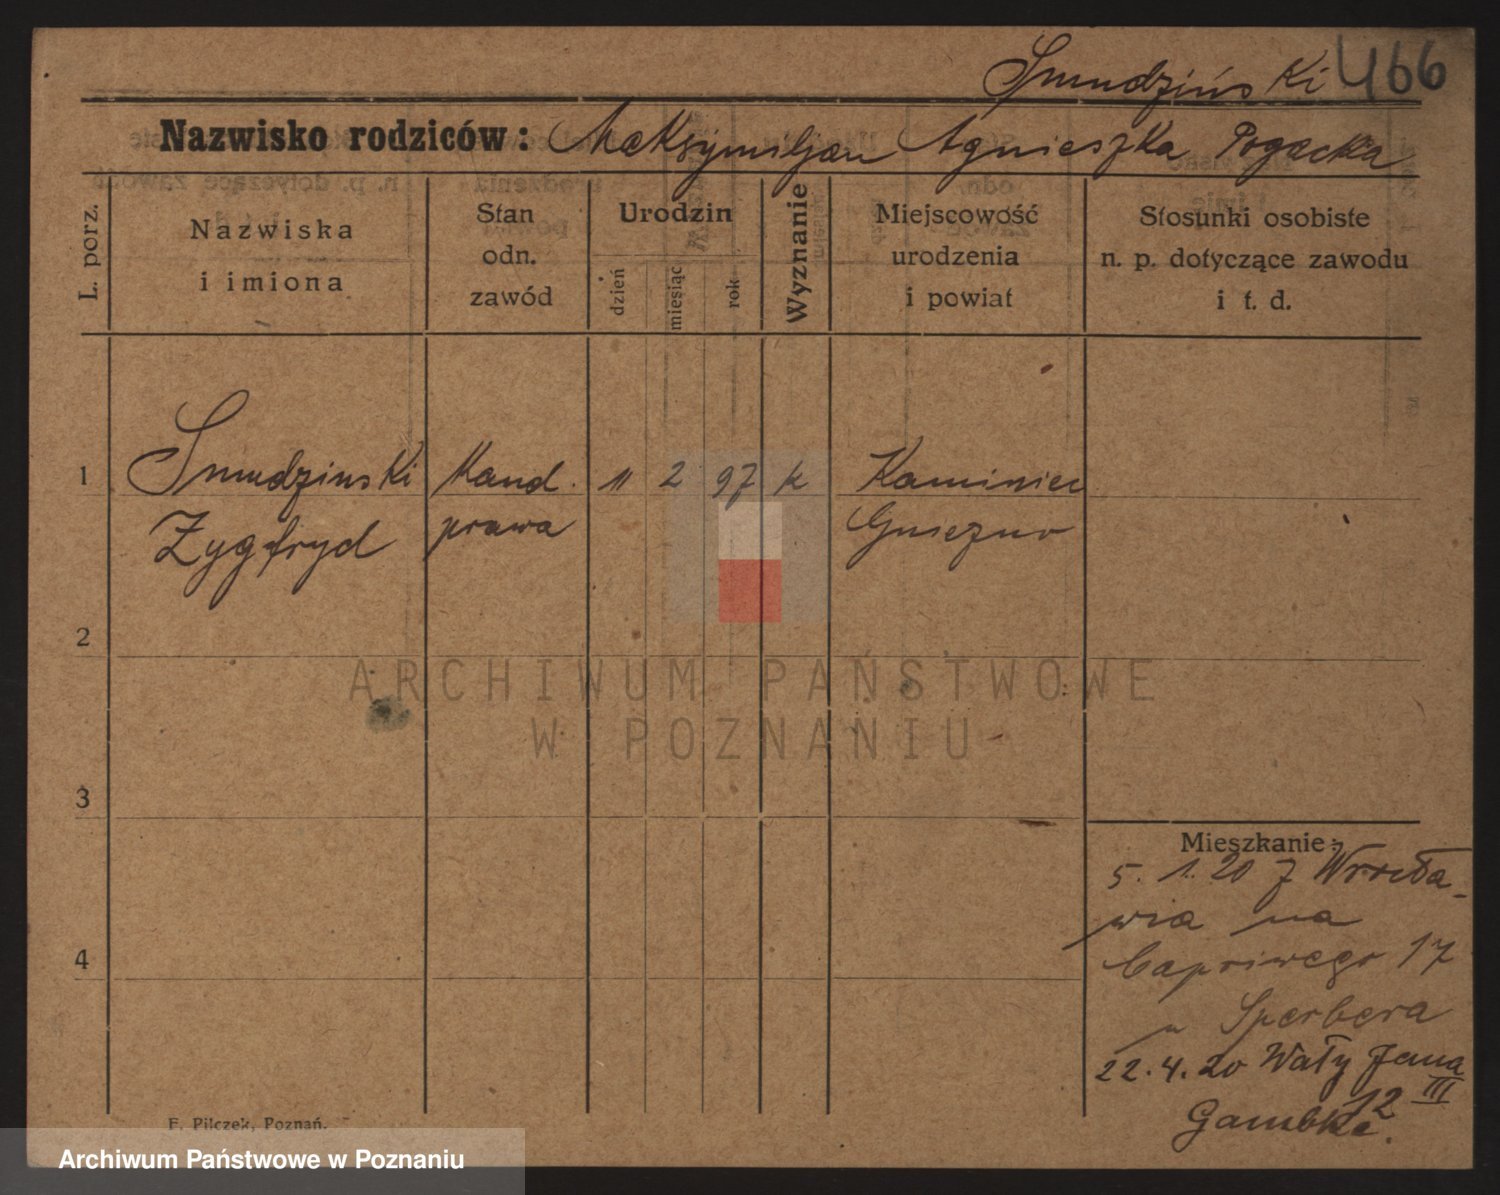 Smudziński 466
Nazwisko rodziców: Maksymiljan Agnieszka Pogacka
L. porz.
Nazwiska
i imiona
Stan
odn.
zawód
Urodzin
dzień
miesiąc
rok
Wyznanie
Miejscowość
urodzenia
i powiat
Stosunki osobiste
n. p. dotyczące zawodu
i t. d.
1
Smudzinski
Zygfryd
Kand.
prawa
11 2 97 k
Kaminiec
Gniezno
2
3
4
Mieszkanie:
5. 1. 20 z Wrocła-
wia na
Capriwego 17
u Sperbera
22. 4. 20 Wały Jana
III
12
Gambke.
F. Pilczek, Poznań.
ARCHIWUM PAŃSTWOWE
W POZNANIU
Archiwum Państwowe w Poznaniu